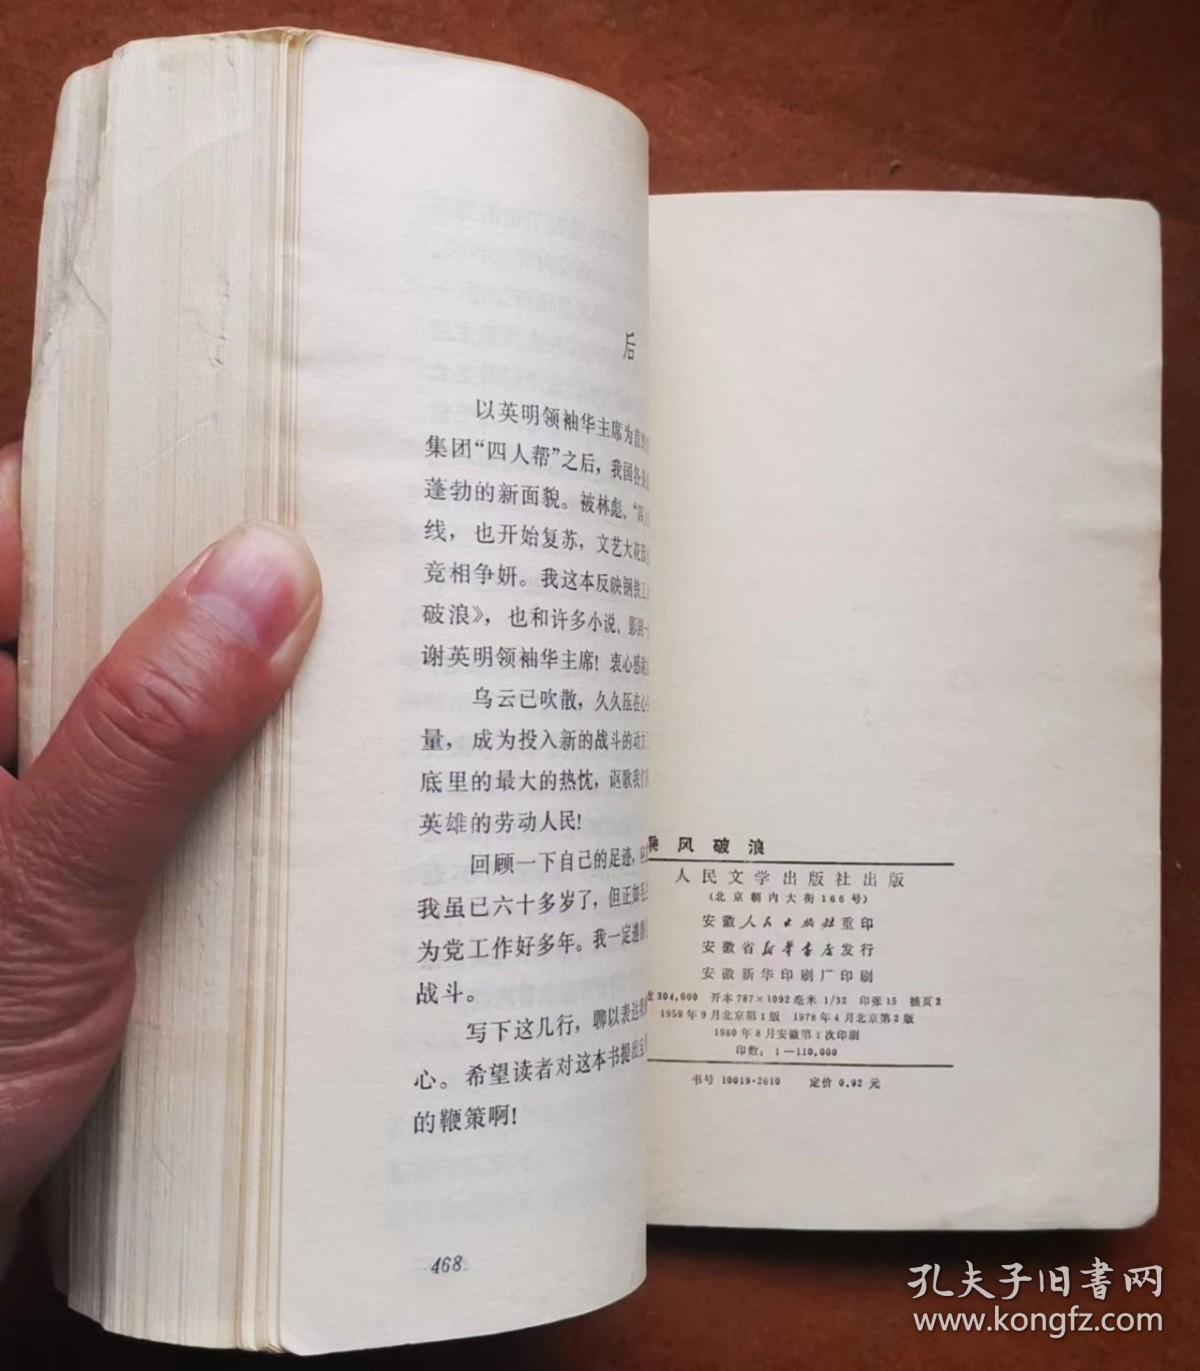 后
以英明领袖华主席为首
集团“四人帮”之后，我国各
蓬勃的新面貌。被林彪、“四人
线，也开始复苏，文艺大花
竞相争妍。我这本反映钢铁工
破浪》，也和许多小说、影
谢英明领袖华主席！衷心感
乌云已吹散，久久压在心
量，成为投入新的战斗的动
底里的最大的热忱，讴歌我们
英雄的劳动人民！
回顾一下自己的足迹，
我虽已六十多岁了，但正如
为党工作好多年。我一定遵
战斗。
写下这几行，聊以表达我
心。希望读者对这本书提出宝
的鞭策啊！
468
乘风破浪
人民文学出版社出版
（北京朝内大街166号）
安徽人民出版社重印
安徽省新华书店发行
安徽新华印刷厂印刷
304,000 开本787×1092毫米 1/32 印张15 插页2
1959年9月北京第1版 1978年4月北京第2版
1980年8月安徽第1次印刷
印数：1—110,000
书号 10019·2610 定价 0.92 元
孔夫子旧书网
www.kongfz.com